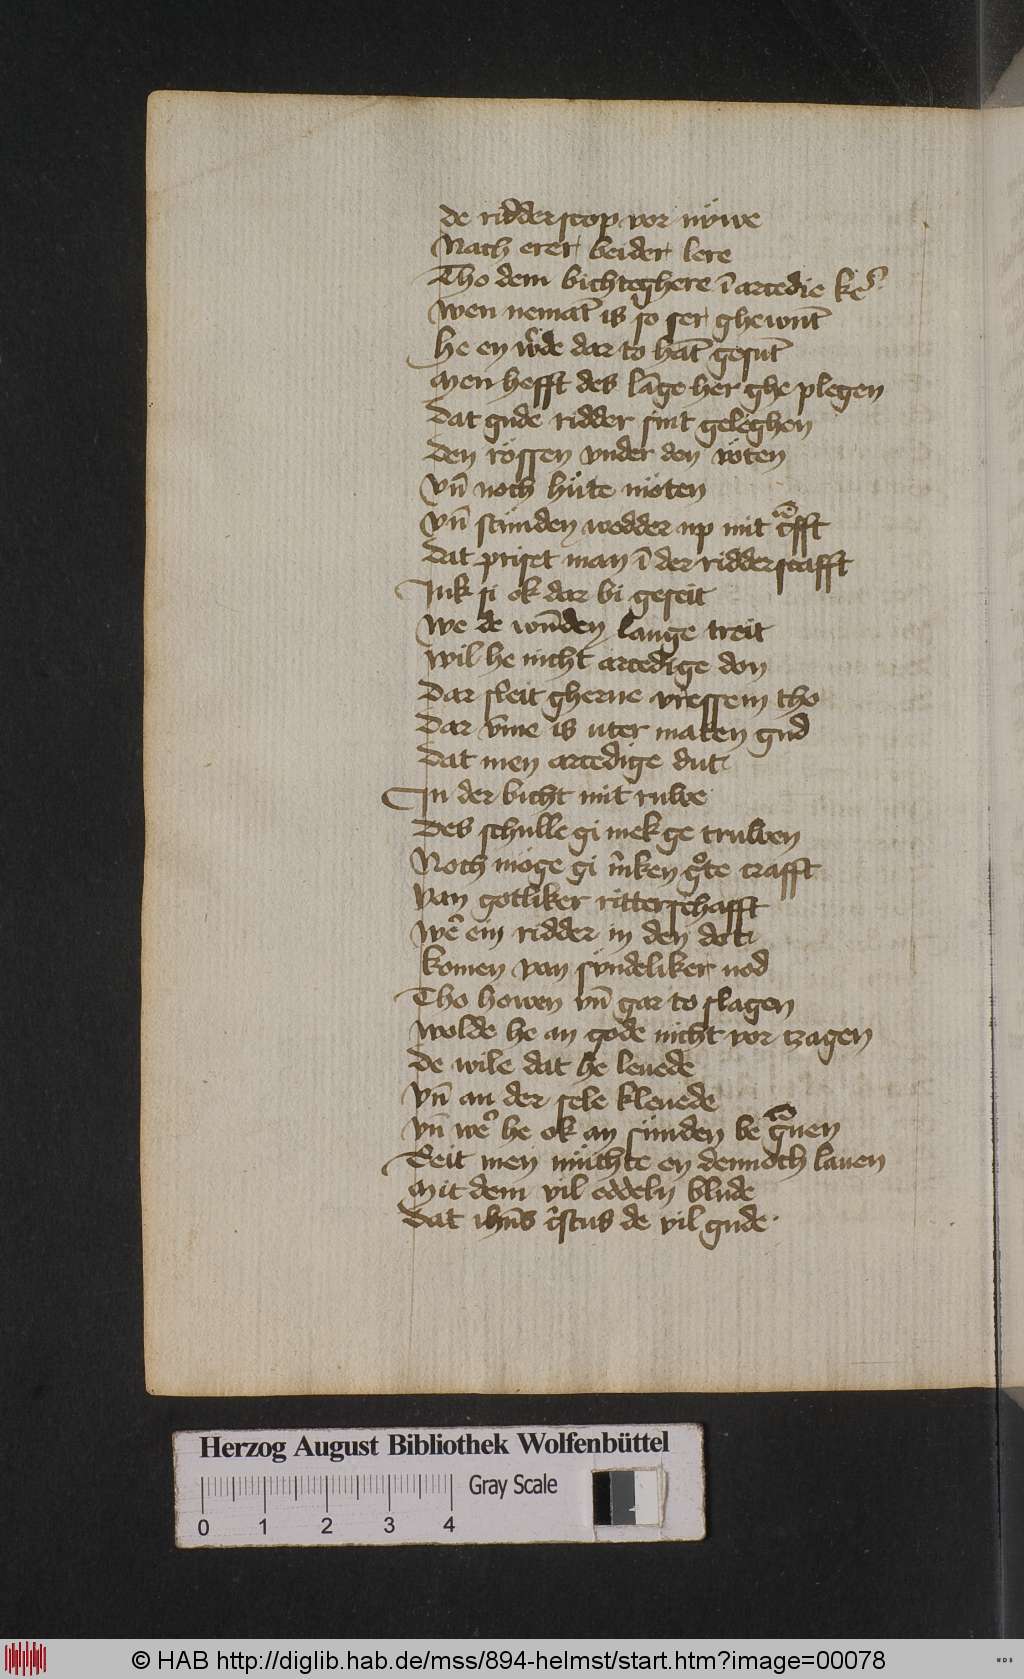 de ridderscop vor nüwe
Nach erer beider lere
Tho dem bichteghere ī arcedie
wen nemāt is so ser ghewūt
he en dar to hāt gesūt
Men hefft des lāge her ghe plegen
Dat gude ridder sint geleghen
Den rössen vnder den vöten
vn̄ noch hüte möten
vn̄ stünden wedder up mit
Dat priset man ī der ridderscafft
Juk si ok dar bi geseit
We de wūden lange treit
wil he nicht arcedige don
Dar sleit gherne vressem tho
Dar vme is uter maten gud
Dat men arcedige dut
In der bicht mit ruwe
Des schulle gi mek ge truwen
Noch möge gi mͥken gͦte crafft
van gotliker ritterschafft
wer̄ ein ridder in den dot
komen van syndeliker nod
Tho howen vn̄ gar to slagen
wolde he an gode nicht vor tzagen
De wile dat he leuede
vn̄ an der sele kleuede
vn̄ wer̄ he ok an sünden be gͣuen
Seit men müchte en dennoch lauen
Mit dem vil eddeln blude
Dat ihūs cͥstus de vil gude.
Herzog August Bibliothek Wolfenbüttel
Gray Scale
0 1 2 3 4
© HAB http://diglib.hab.de/mss/894-helmst/start.htm?image=00078